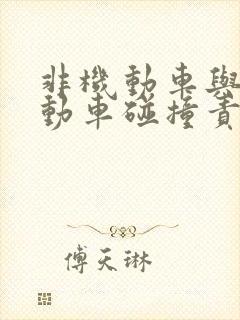 非機動車與
動車碰撞責
傅天琳